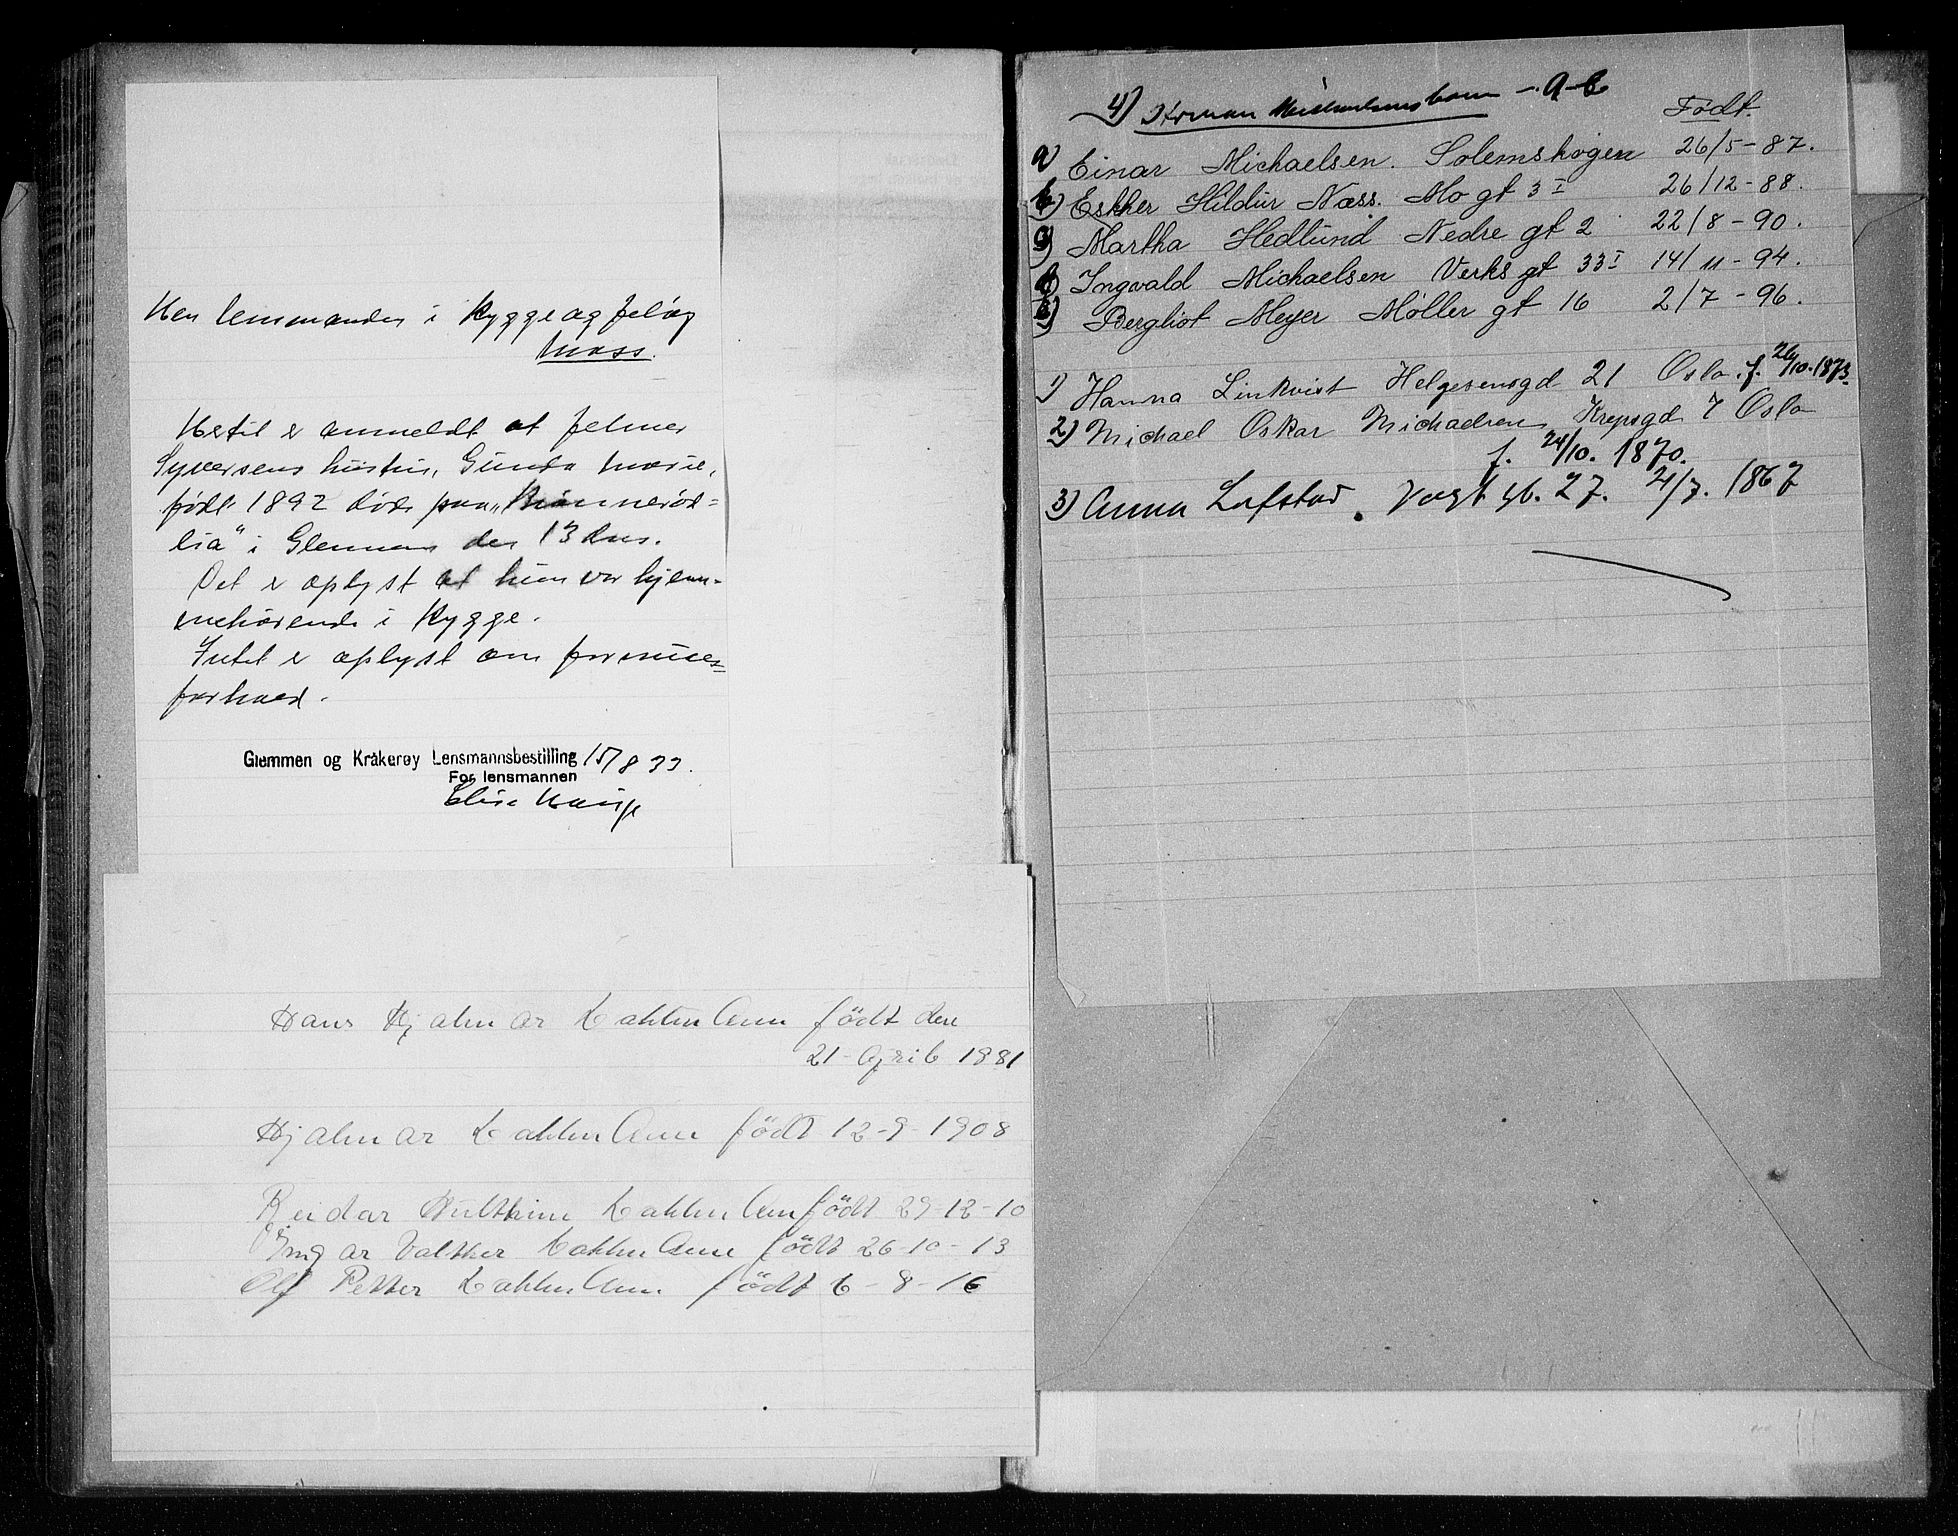 Herr lensmanden i Rygge og Jeløy
Moss.
Hertil er anmeldt at Jelmer
Syversens hustru, Gunda Marie,
født 1892 døde paa „Rønnerød=
lia" i Glemmen den 13 ds.
Det er oplyst at hun var hjem-
mehørende i Rygge.
Intet er oplyst om formues=
forhold.
Glemmen og Kråkerøy Lensmannsbestilling 15/8 33.
For lensmannen
Elise Hauge
Hans Hjalmar født den
21-April 1881
Hjalmar født 12-9-1908
Reidar født 29-12-10
Ingar Valther født 26-10-13
Olf Petter født 6-8-16
4) Herman Michaelsens barn - a-e
Født.
a) Einar Michaelsen. Solemskogen 26/5-87.
b) Esther Hildur Næss. Mogt 3 I 26/12-88.
c) Martha Hedlund Nedre gt 2 22/8-90.
d) Ingvald Michaelsen Verksgt 33 I 14/11-94.
e) Bergliot Meyer Møller gt 16 2/7-96.
1) Hanna Linkvist Helgesensgd 21 Oslo. f. 26/10.1873.
2) Michael Oskar Michaelsen Krepsgd 7 Oslo
f. 24/10. 1870.
3) Anna Lofstad. Vogt gt. 27. 21/7. 1867